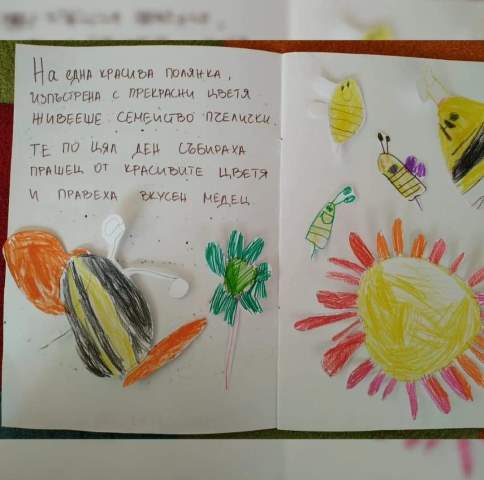 На една красива полянка,
изпъстрена с прекрасни цветя
живееше семейство пчелички.
Те по цял ден събираха
прашец от красивите цветя
и правеха вкусен медец.